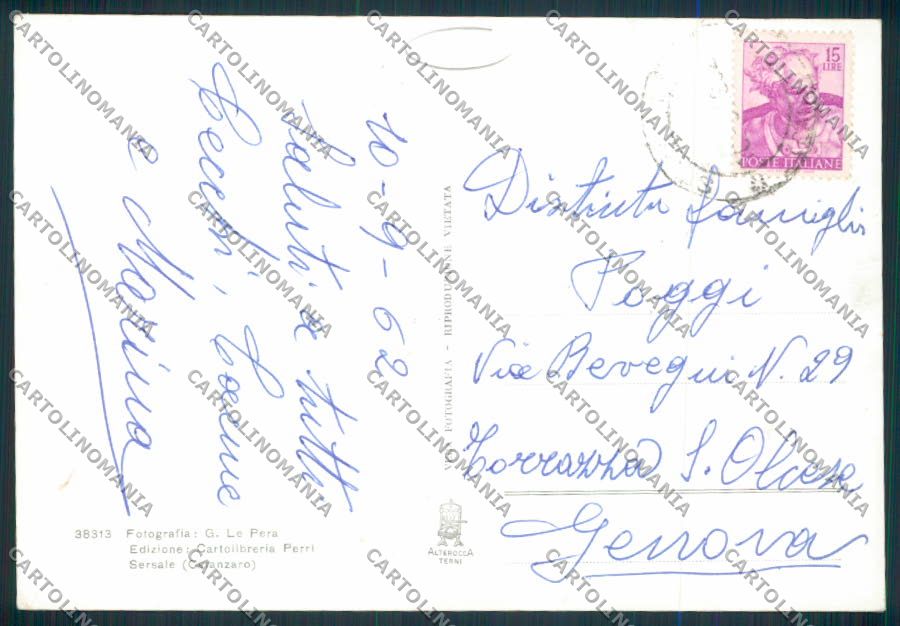 10-9-62
Saluti a tutti
Cecchi, Cocine
e Marina
VERA FOTOGRAFIA - RIPRODUZIONE VIETATA
15
LIRE
POSTE ITALIANE
Distinta famiglia
Poggi
Via Bevegni N. 29
Torrazza S. Olcese
Genova
38313 Fotografia: G. Le Pera
Edizione: Cartolibreria Perri
Sersale (Catanzaro)
ALTEROCCA
TERNI
CARTOLINOMANIA